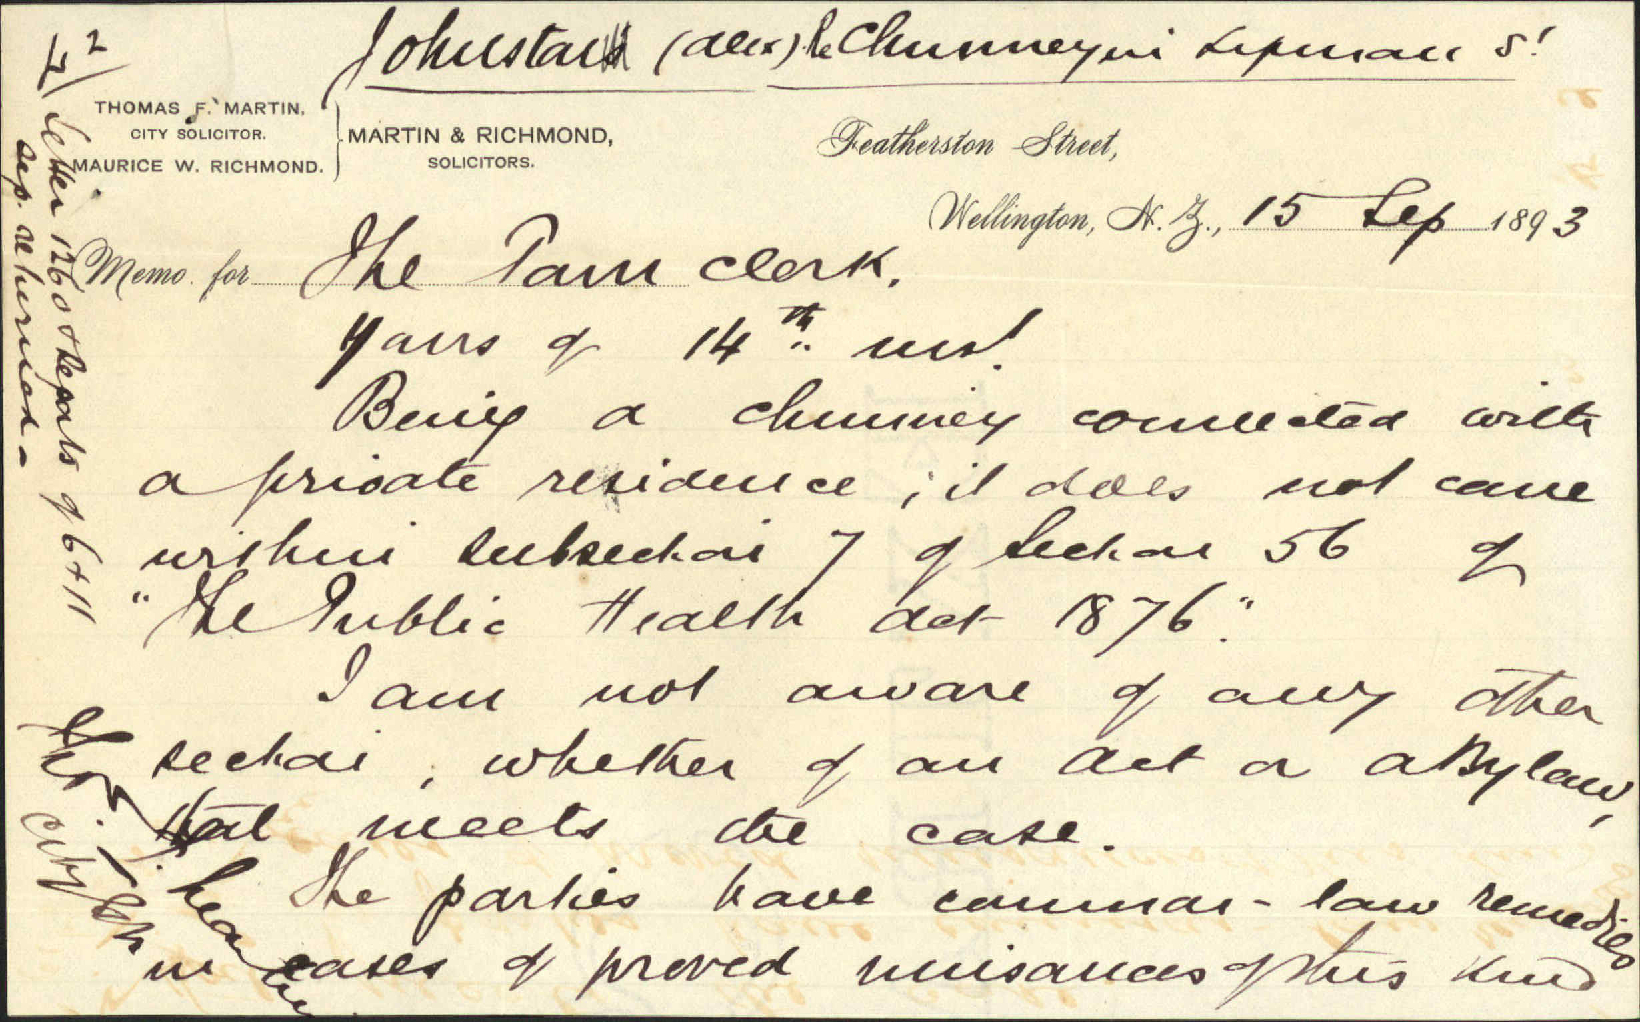 Johnston (Alex) Re Chimney in Lipman St
THOMAS F. MARTIN.
CITY SOLICITOR.
MAURICE W. RICHMOND.
MARTIN & RICHMOND,
SOLICITORS.
Featherston Street,
Wellington, N. Z., 15 Sep 1893
Memo. for The Town Clerk.
Yours of 14th inst.
Being a chimney connected with
a private residence ; it does not come
within subsection 7 of Section 56 of
"The Public Health Act 1876".
I am not aware of any other
section, whether of an Act or a Bylaw,
that meets the case.
The parties have common-law remedies
in cases of proved nuisances of this kind
Letter 1260 & Reports of 6 + 11
Sep. returned -
City